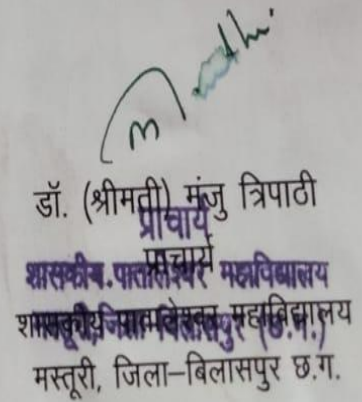 डॉ. (श्रीमती) मंजु त्रिपाठी
प्राचार्य
प्राचार्य
शासकीय.पातालेश्वर महाविद्यालय
शासकीय पातालेश्वर महाविद्यालय
मस्तूरी, जिला-बिलासपुर (छ.ग.)
मस्तूरी, जिला-बिलासपुर छ.ग.